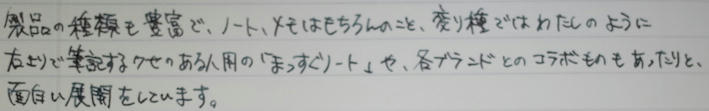 製品の種類も豊富で、ノート、メモはもちろんのこと、変り種ではわたしのように
右上りで筆記するクセのある人用の「まっすぐノート」や、各ブランドとのコラボものもあったりと、
面白い展開をしています。